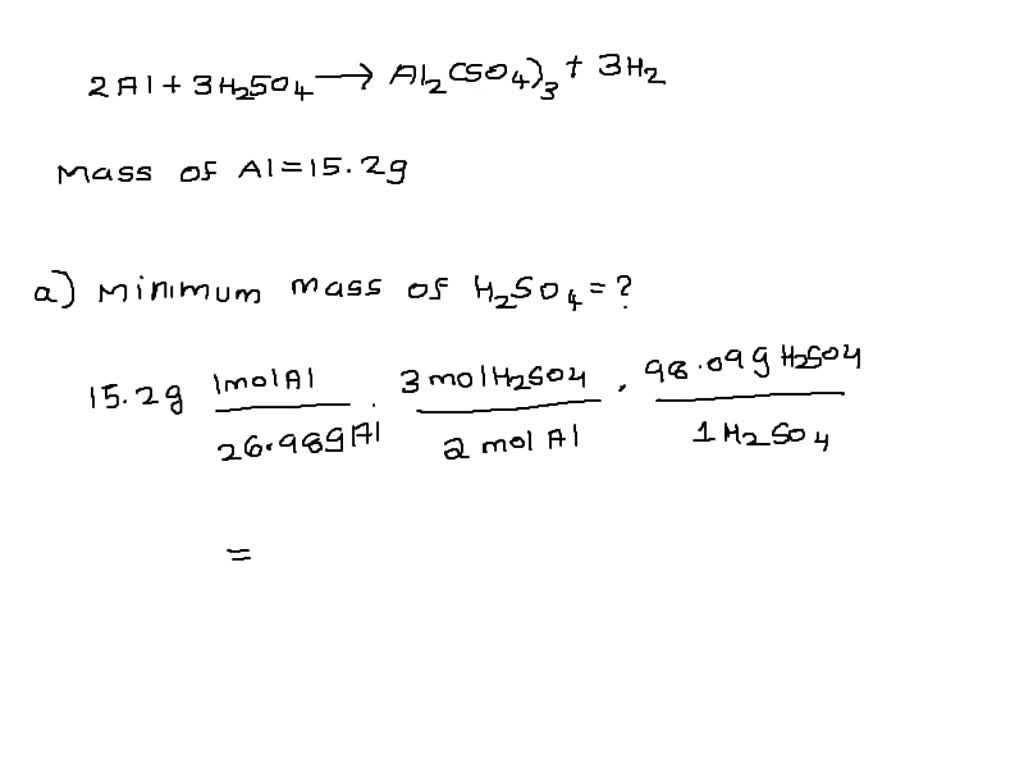 2Al + 3H2SO4 → Al2(SO4)3 + 3H2
Mass of Al = 15.2g
a) Minimum mass of H2SO4 = ?
15.2g 1molAl / 26.98gAl . 3molH2SO4 / 2 mol Al . 98.09gH2SO4 / 1H2SO4
=